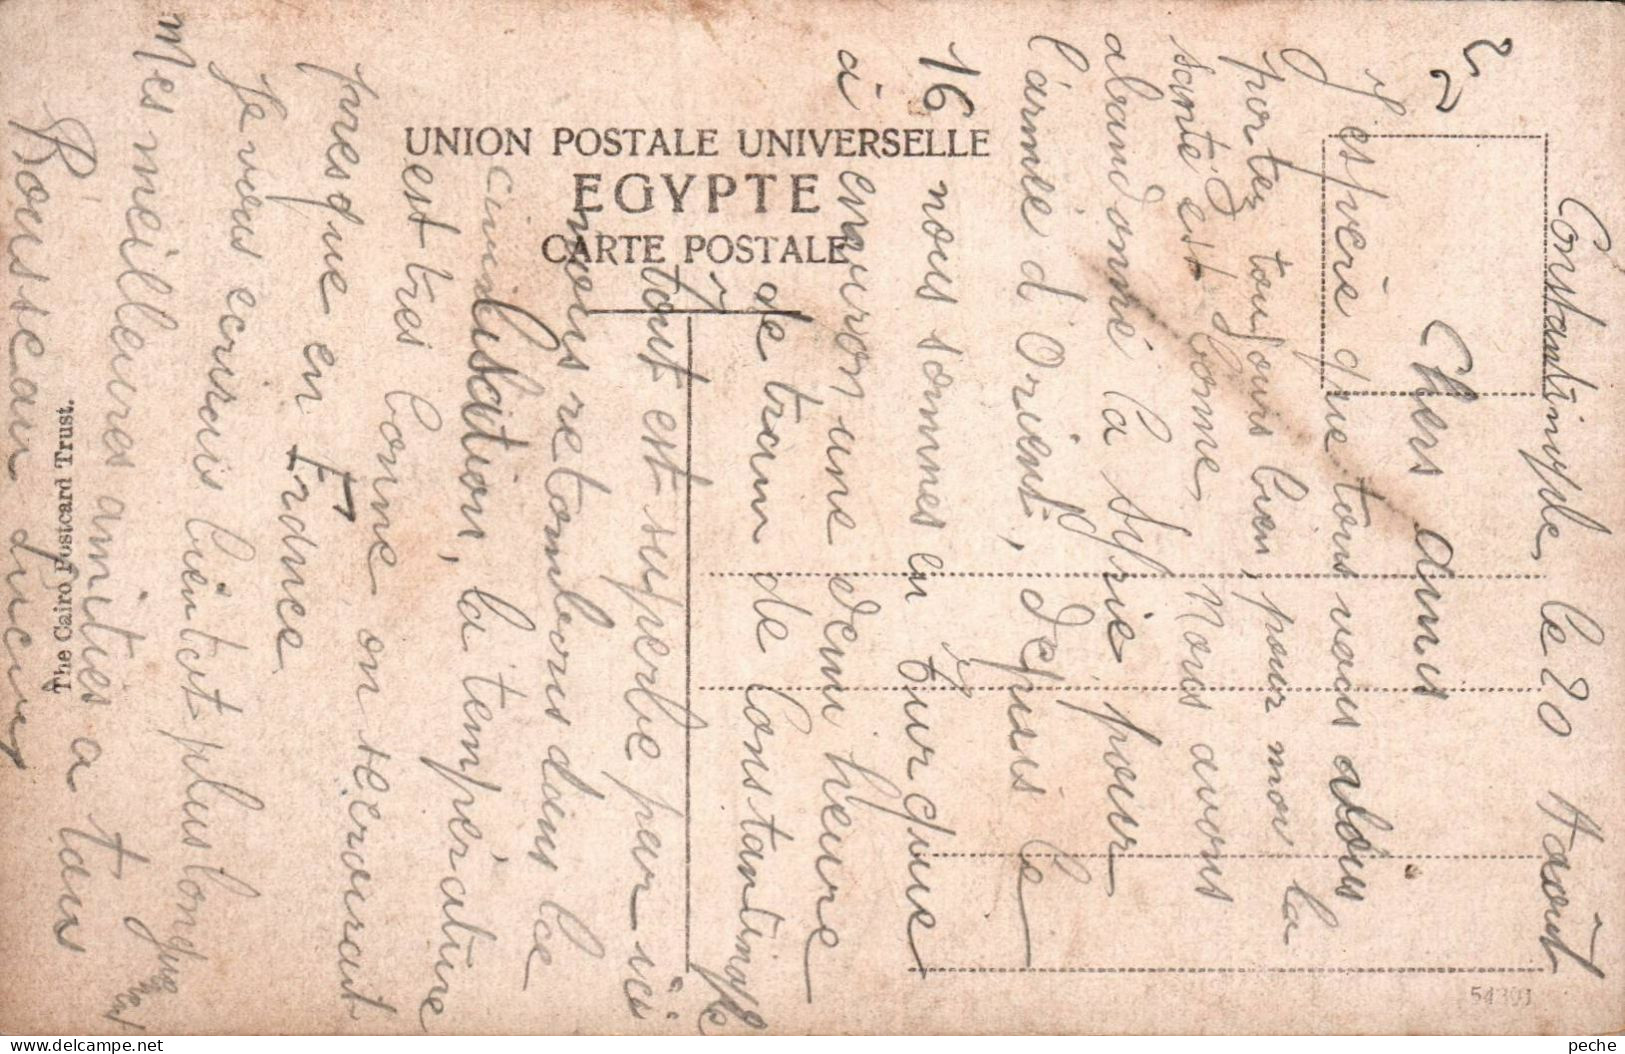 Constantinople, le 20 Aaoût
22
Chers amis
J'espère que tous vous alous
portez toujours bien, pour moi la
santé est bonne, Nous avons
abandonné la Syrie pour
l'armée d'Orient, depuis le
16 nous sommes en turquie
à environ une demi heure
de train de Constantinople
tout est superbe par ici
nous retombons dans la
civinlisation, la température
est tres bonne on secroirait
presque en France
Je vous ecrirais bientot plus longue
ment
Mes meilleures amitiés a tous
Rousseau Lucien
UNION POSTALE UNIVERSELLE
EGYPTE
CARTE POSTALE
The Cairo Postcard Trust.
54391
peche
delcampe.net